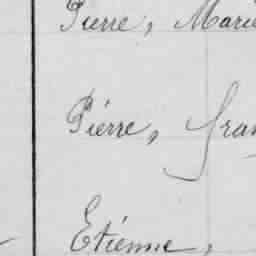 Pierre, Marie
Piérre, Fran
Etiénne,